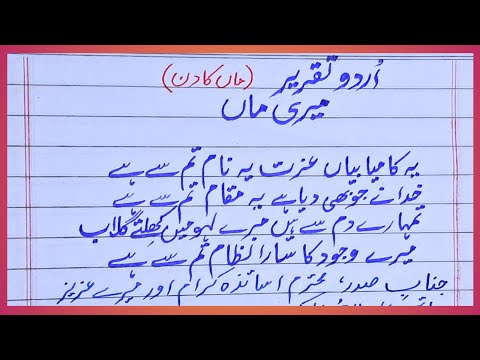 اُردو تقریر (ماں کا دن)
میری ماں
یہ کامیابیاں عزت یہ نام تم سے ہے
خدا نے جو بھی دیا ہے یہ مقام تم سے ہے
تمہارے دم سے ہیں میرے لہو میں کھلتے گلاب
میرے وجود کا سارا نظام تم سے ہے
جناب صدر، محترم اساتذہ کرام اور میرے عزیز